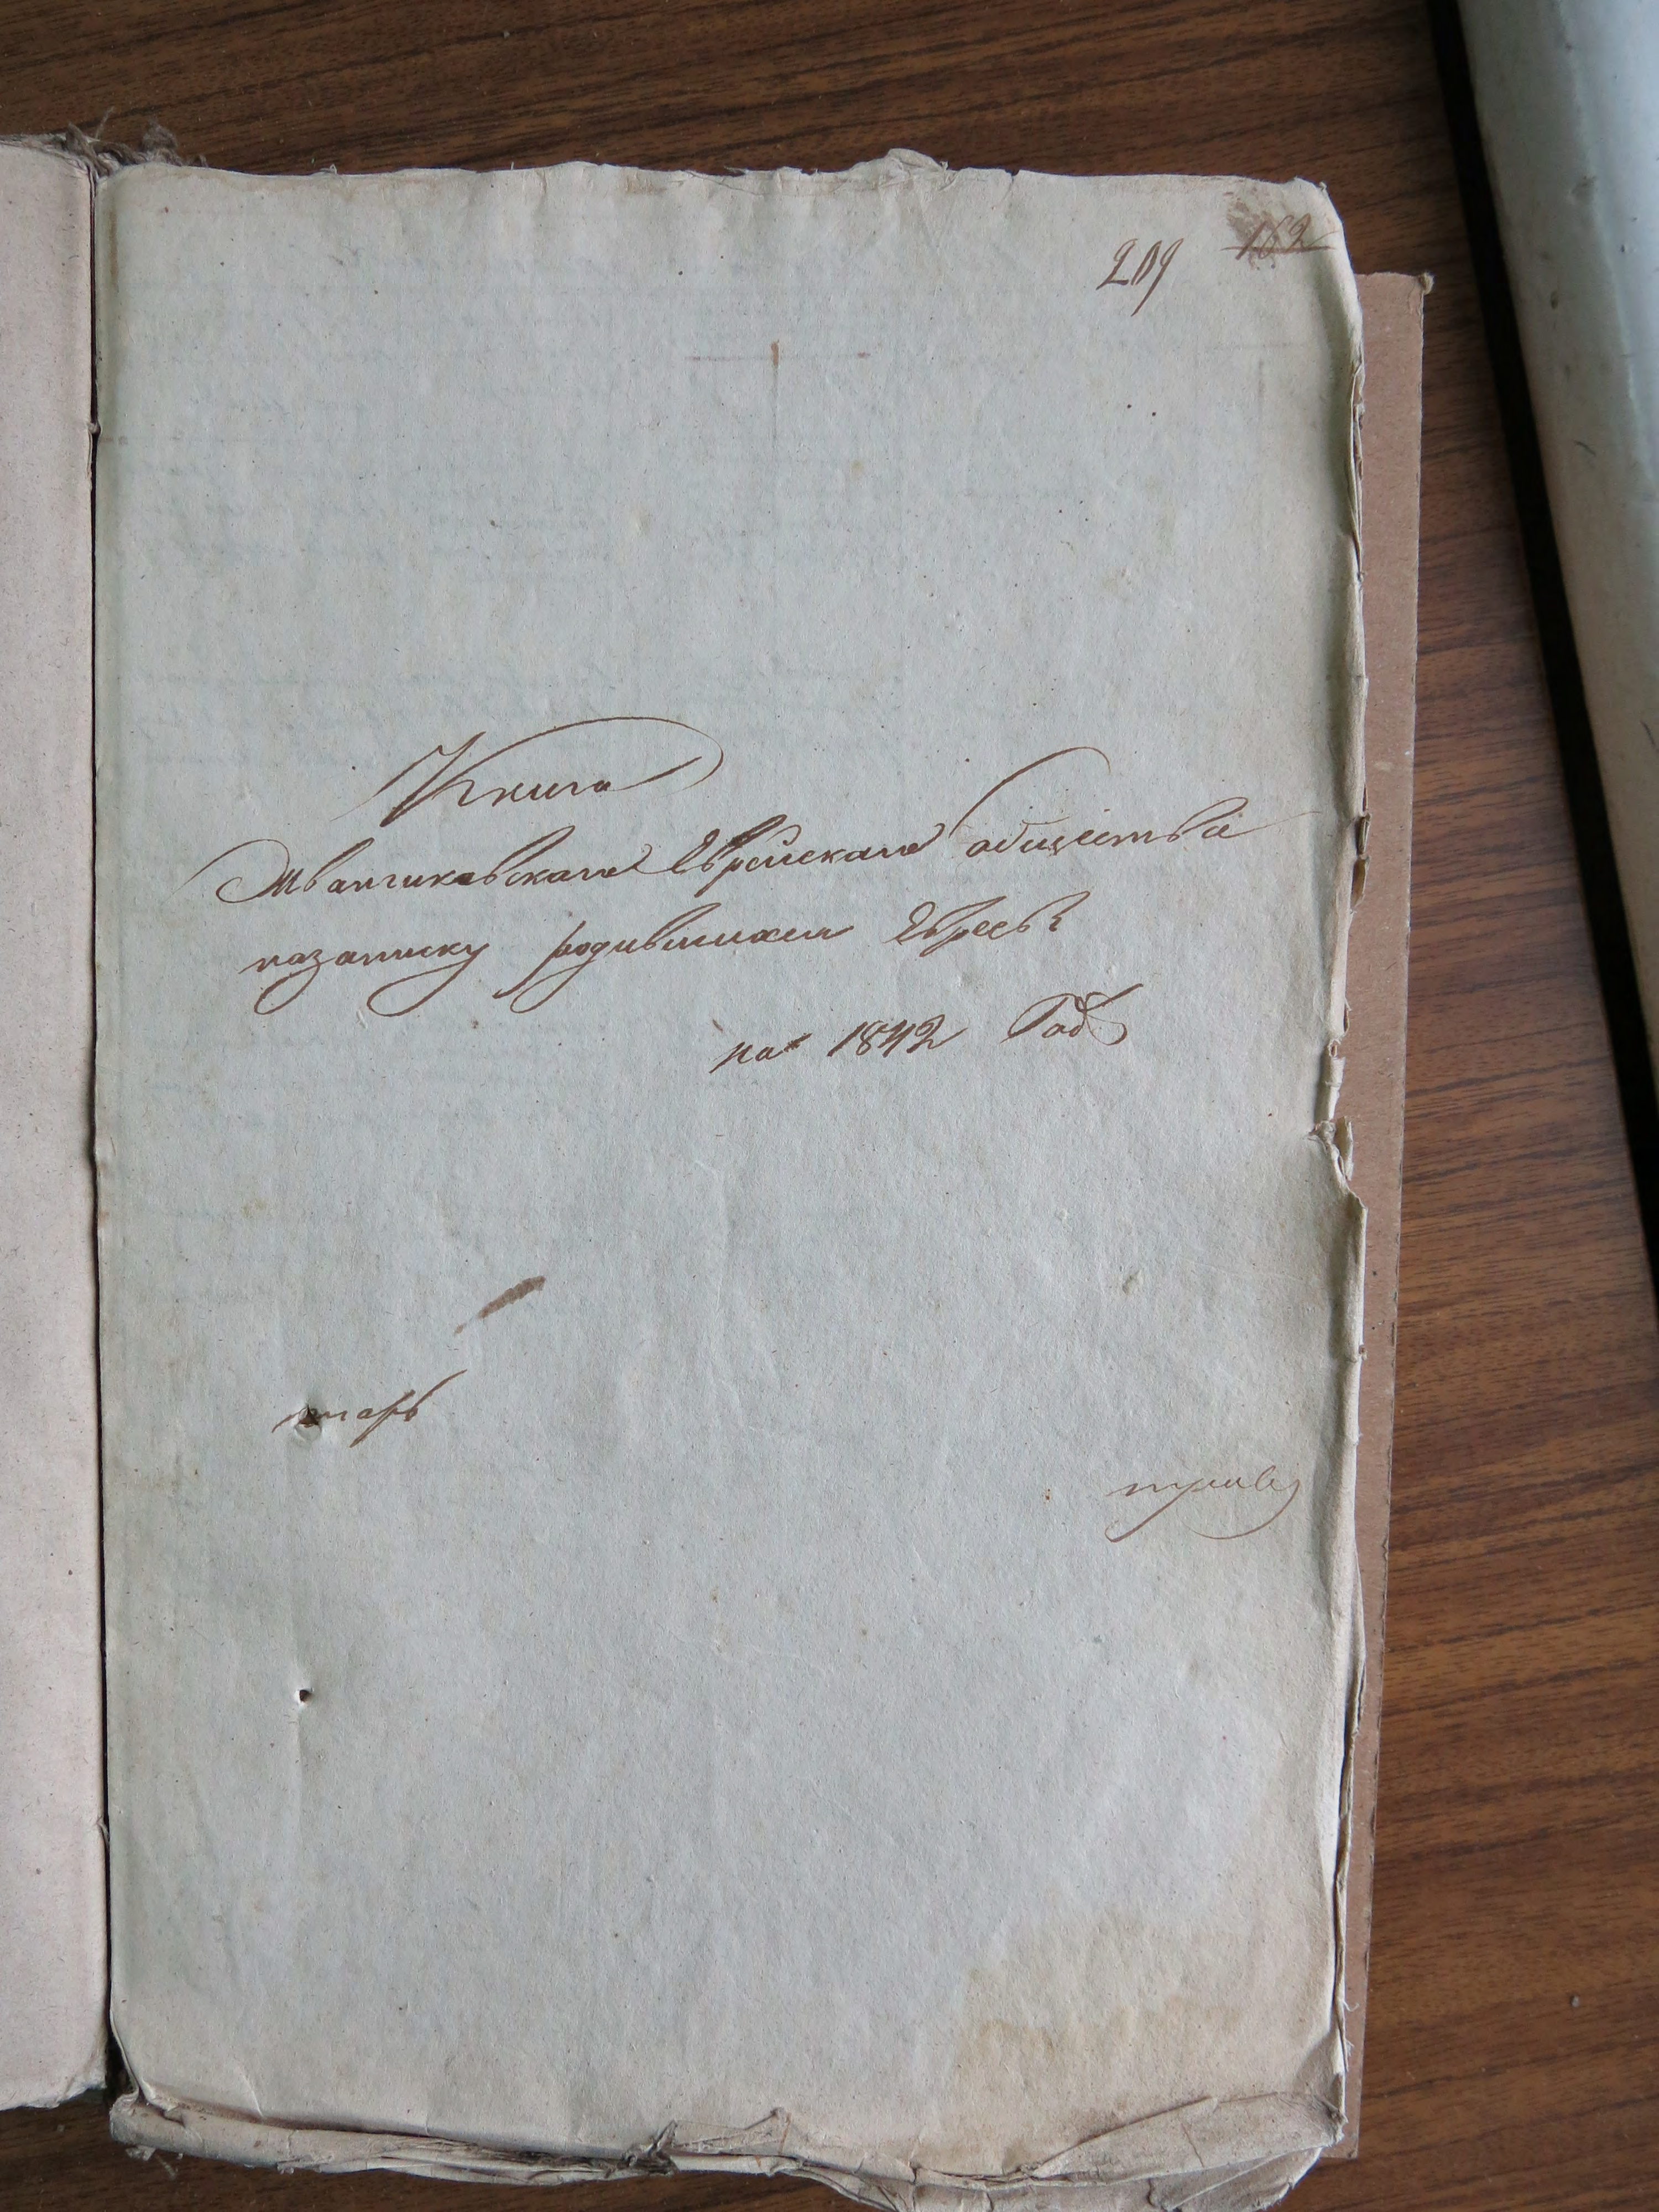 209 162
Книга
Жванчиковскаго Еврейскаго общества
назаписку родившихся Евреевъ
на 1842 Годъ
тарь